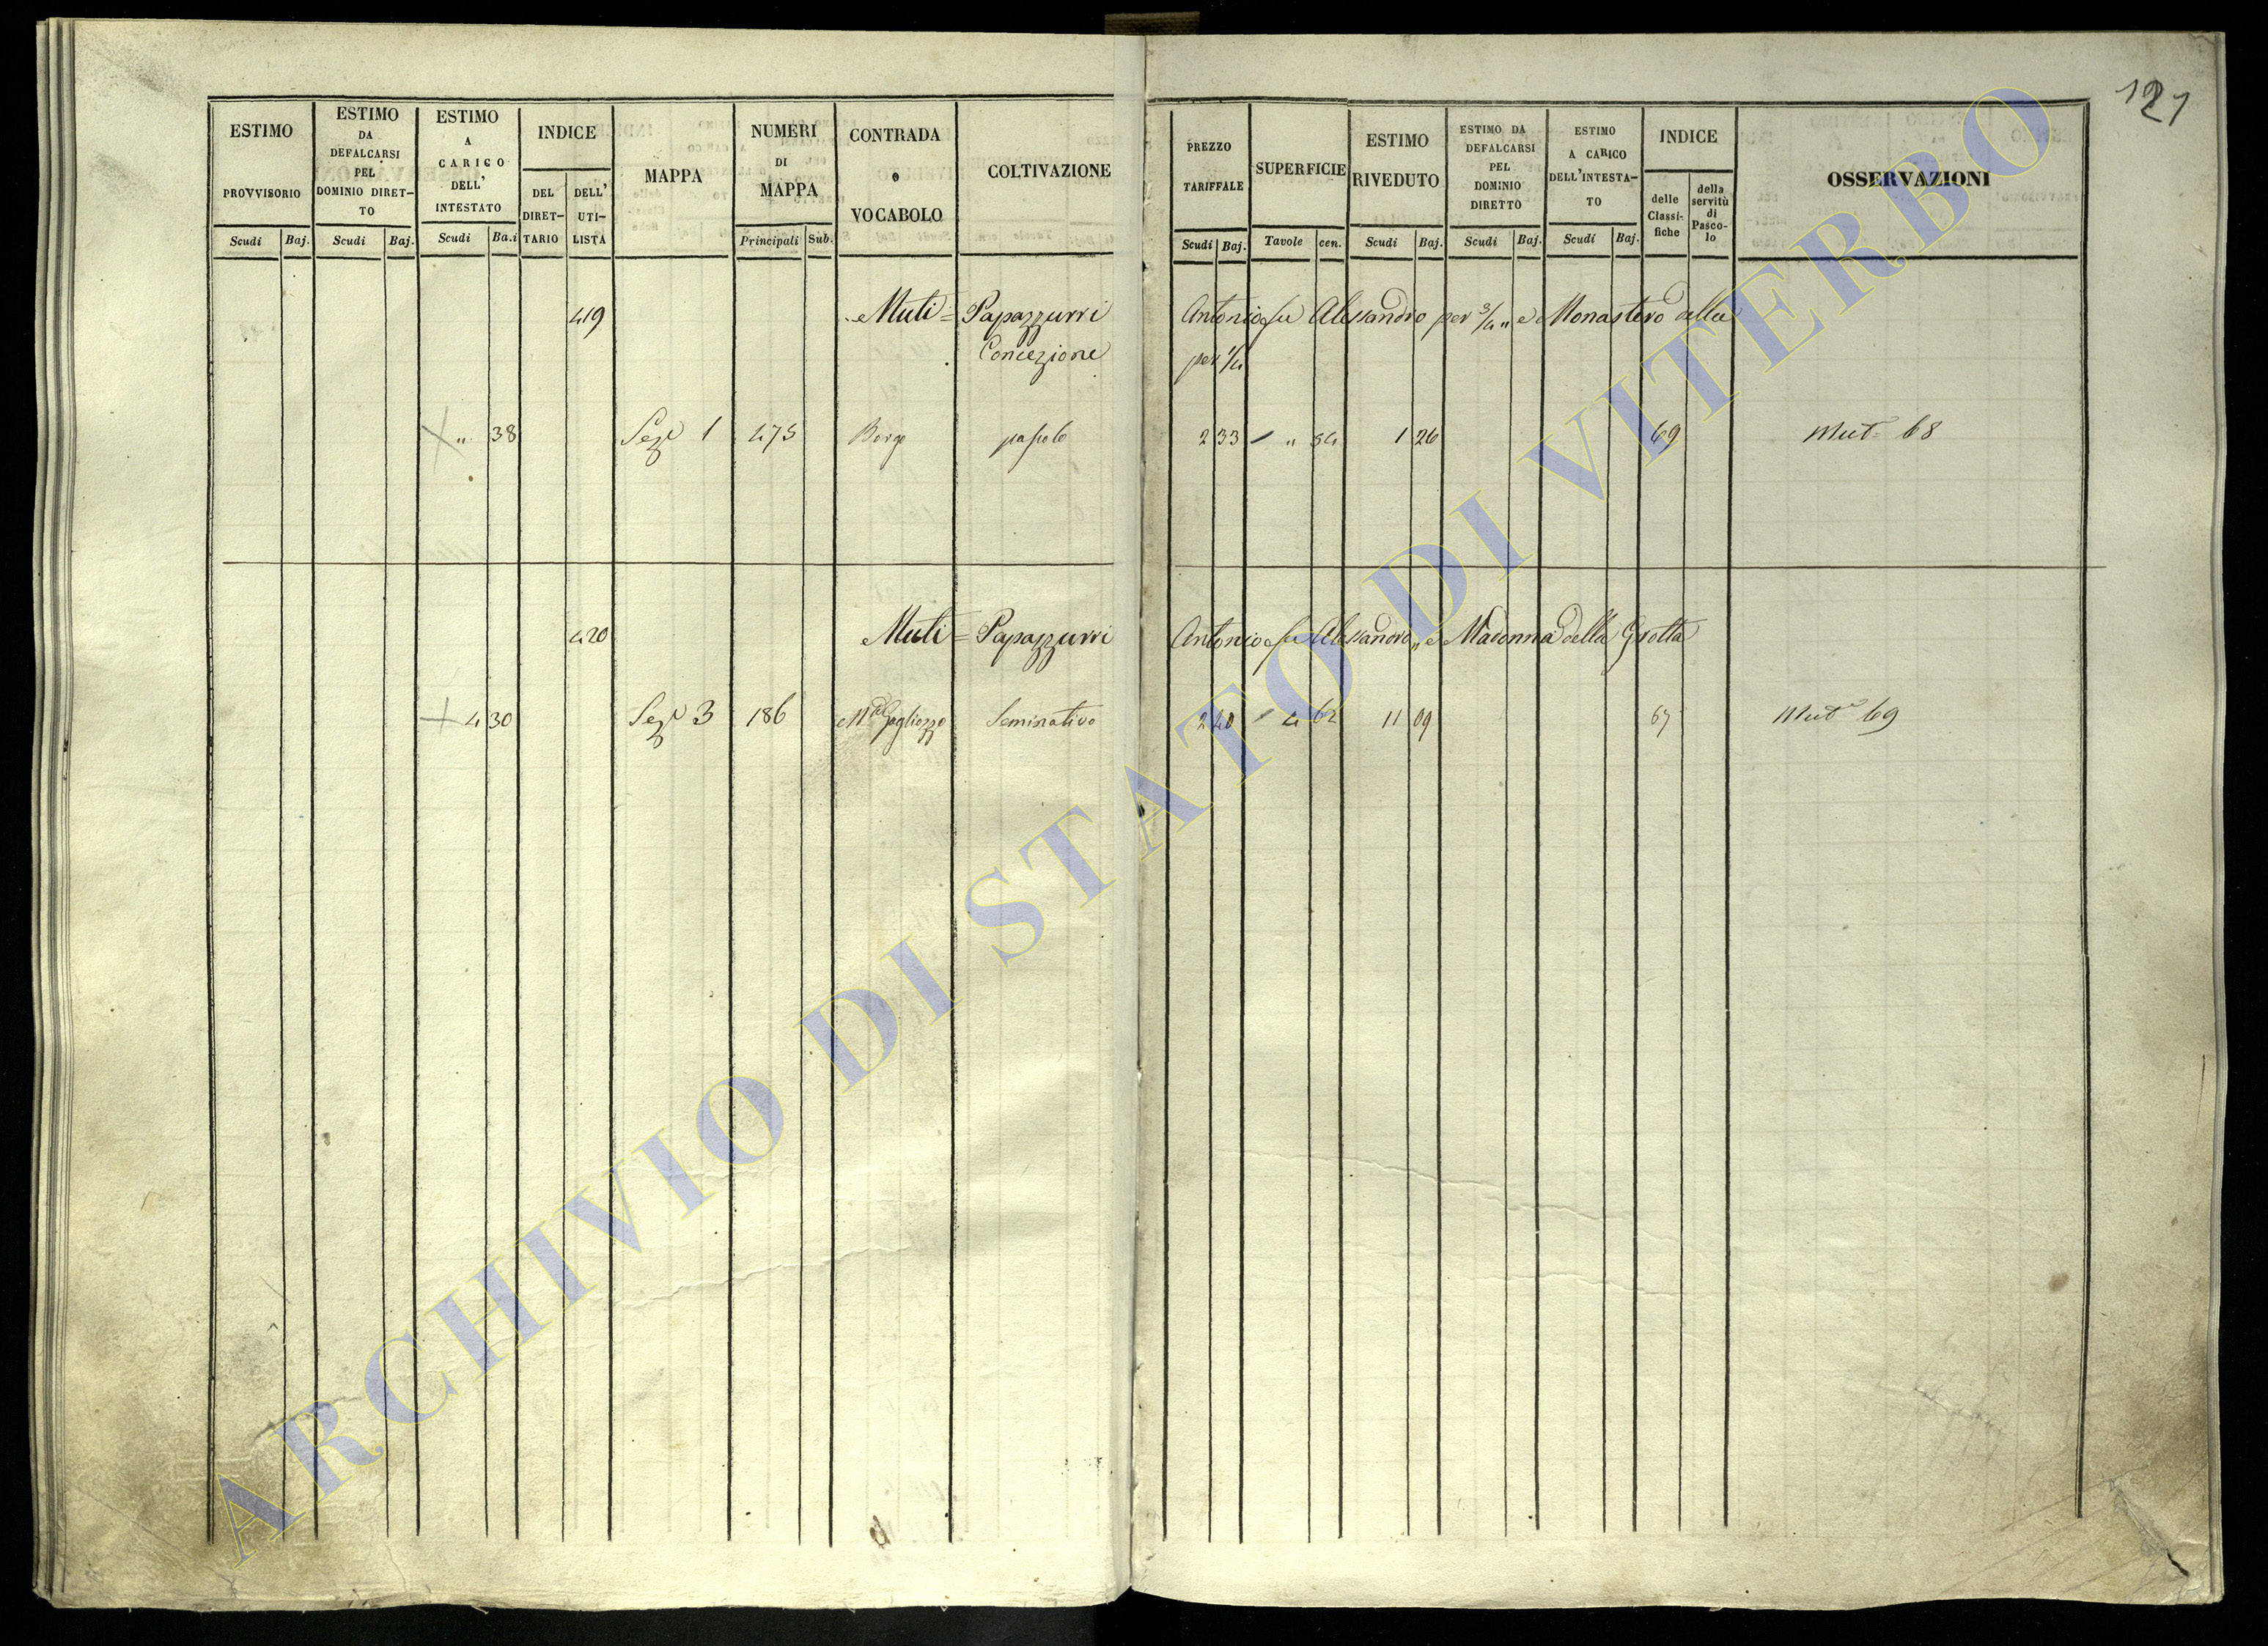 121
ESTIMO PROVVISORIO Scudi Baj.
ESTIMO DA DEFALCARSI PEL DOMINIO DIRET–TO Scudi Baj.
ESTIMO A CARICO DELL' INTESTATO Scudi Ba.i
INDICE DEL DIRET–TARIO DELL' UTI–LISTA
MAPPA
NUMERI DI MAPPA Principali Sub.
CONTRADA o VOCABOLO
COLTIVAZIONE
PREZZO TARIFFALE Scudi Baj.
SUPERFICIE Tavole cen.
ESTIMO RIVEDUTO Scudi Baj.
ESTIMO DA DEFALCARSI PEL DOMINIO DIRETTO Scudi Baj.
ESTIMO A CARICO DELL'INTESTA–TO Scudi Baj.
INDICE delle Classi-fiche della servitù di Pasco-lo
OSSERVAZIONI
419 Muti = Papazzurri Antonio fu Alessandro per 3/4 „ e Monastero della
Concezione per 1/4
„ 38 Sez.e 1 475 Borgo pascolo 2 33 „ 54 1 26 69 Mut.e 68
420 Muti = Papazzurri Antonio fu Alessandro „ e Madonna della Grotta
4 30 Sez.e 3 186 Seminativo 2 40 4 62 11 09 67 Mut.e 69
ARCHIVIO DI STATO DI VITERBO